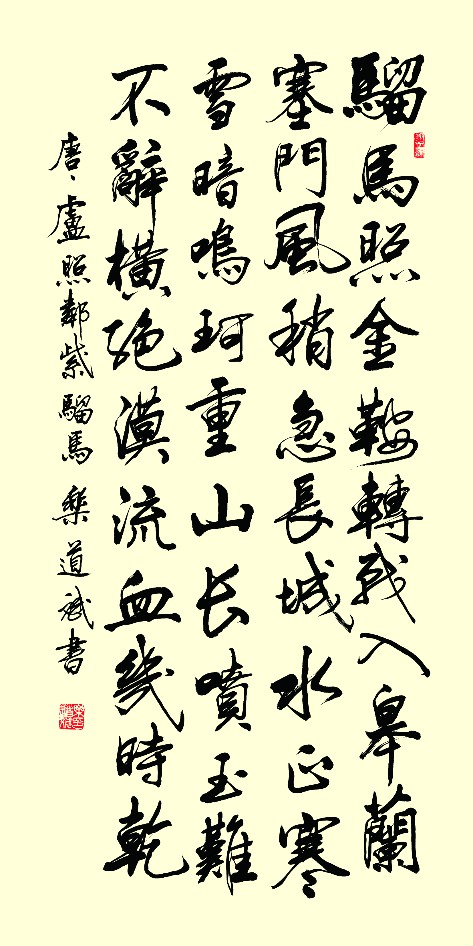 騮馬照金鞍轉戰入皋蘭
塞門風稍急長城水正寒
雪暗鳴珂重山长噴玉難
不辭橫絕漠流血幾時乾
唐、盧照鄰紫騮馬 道斌書